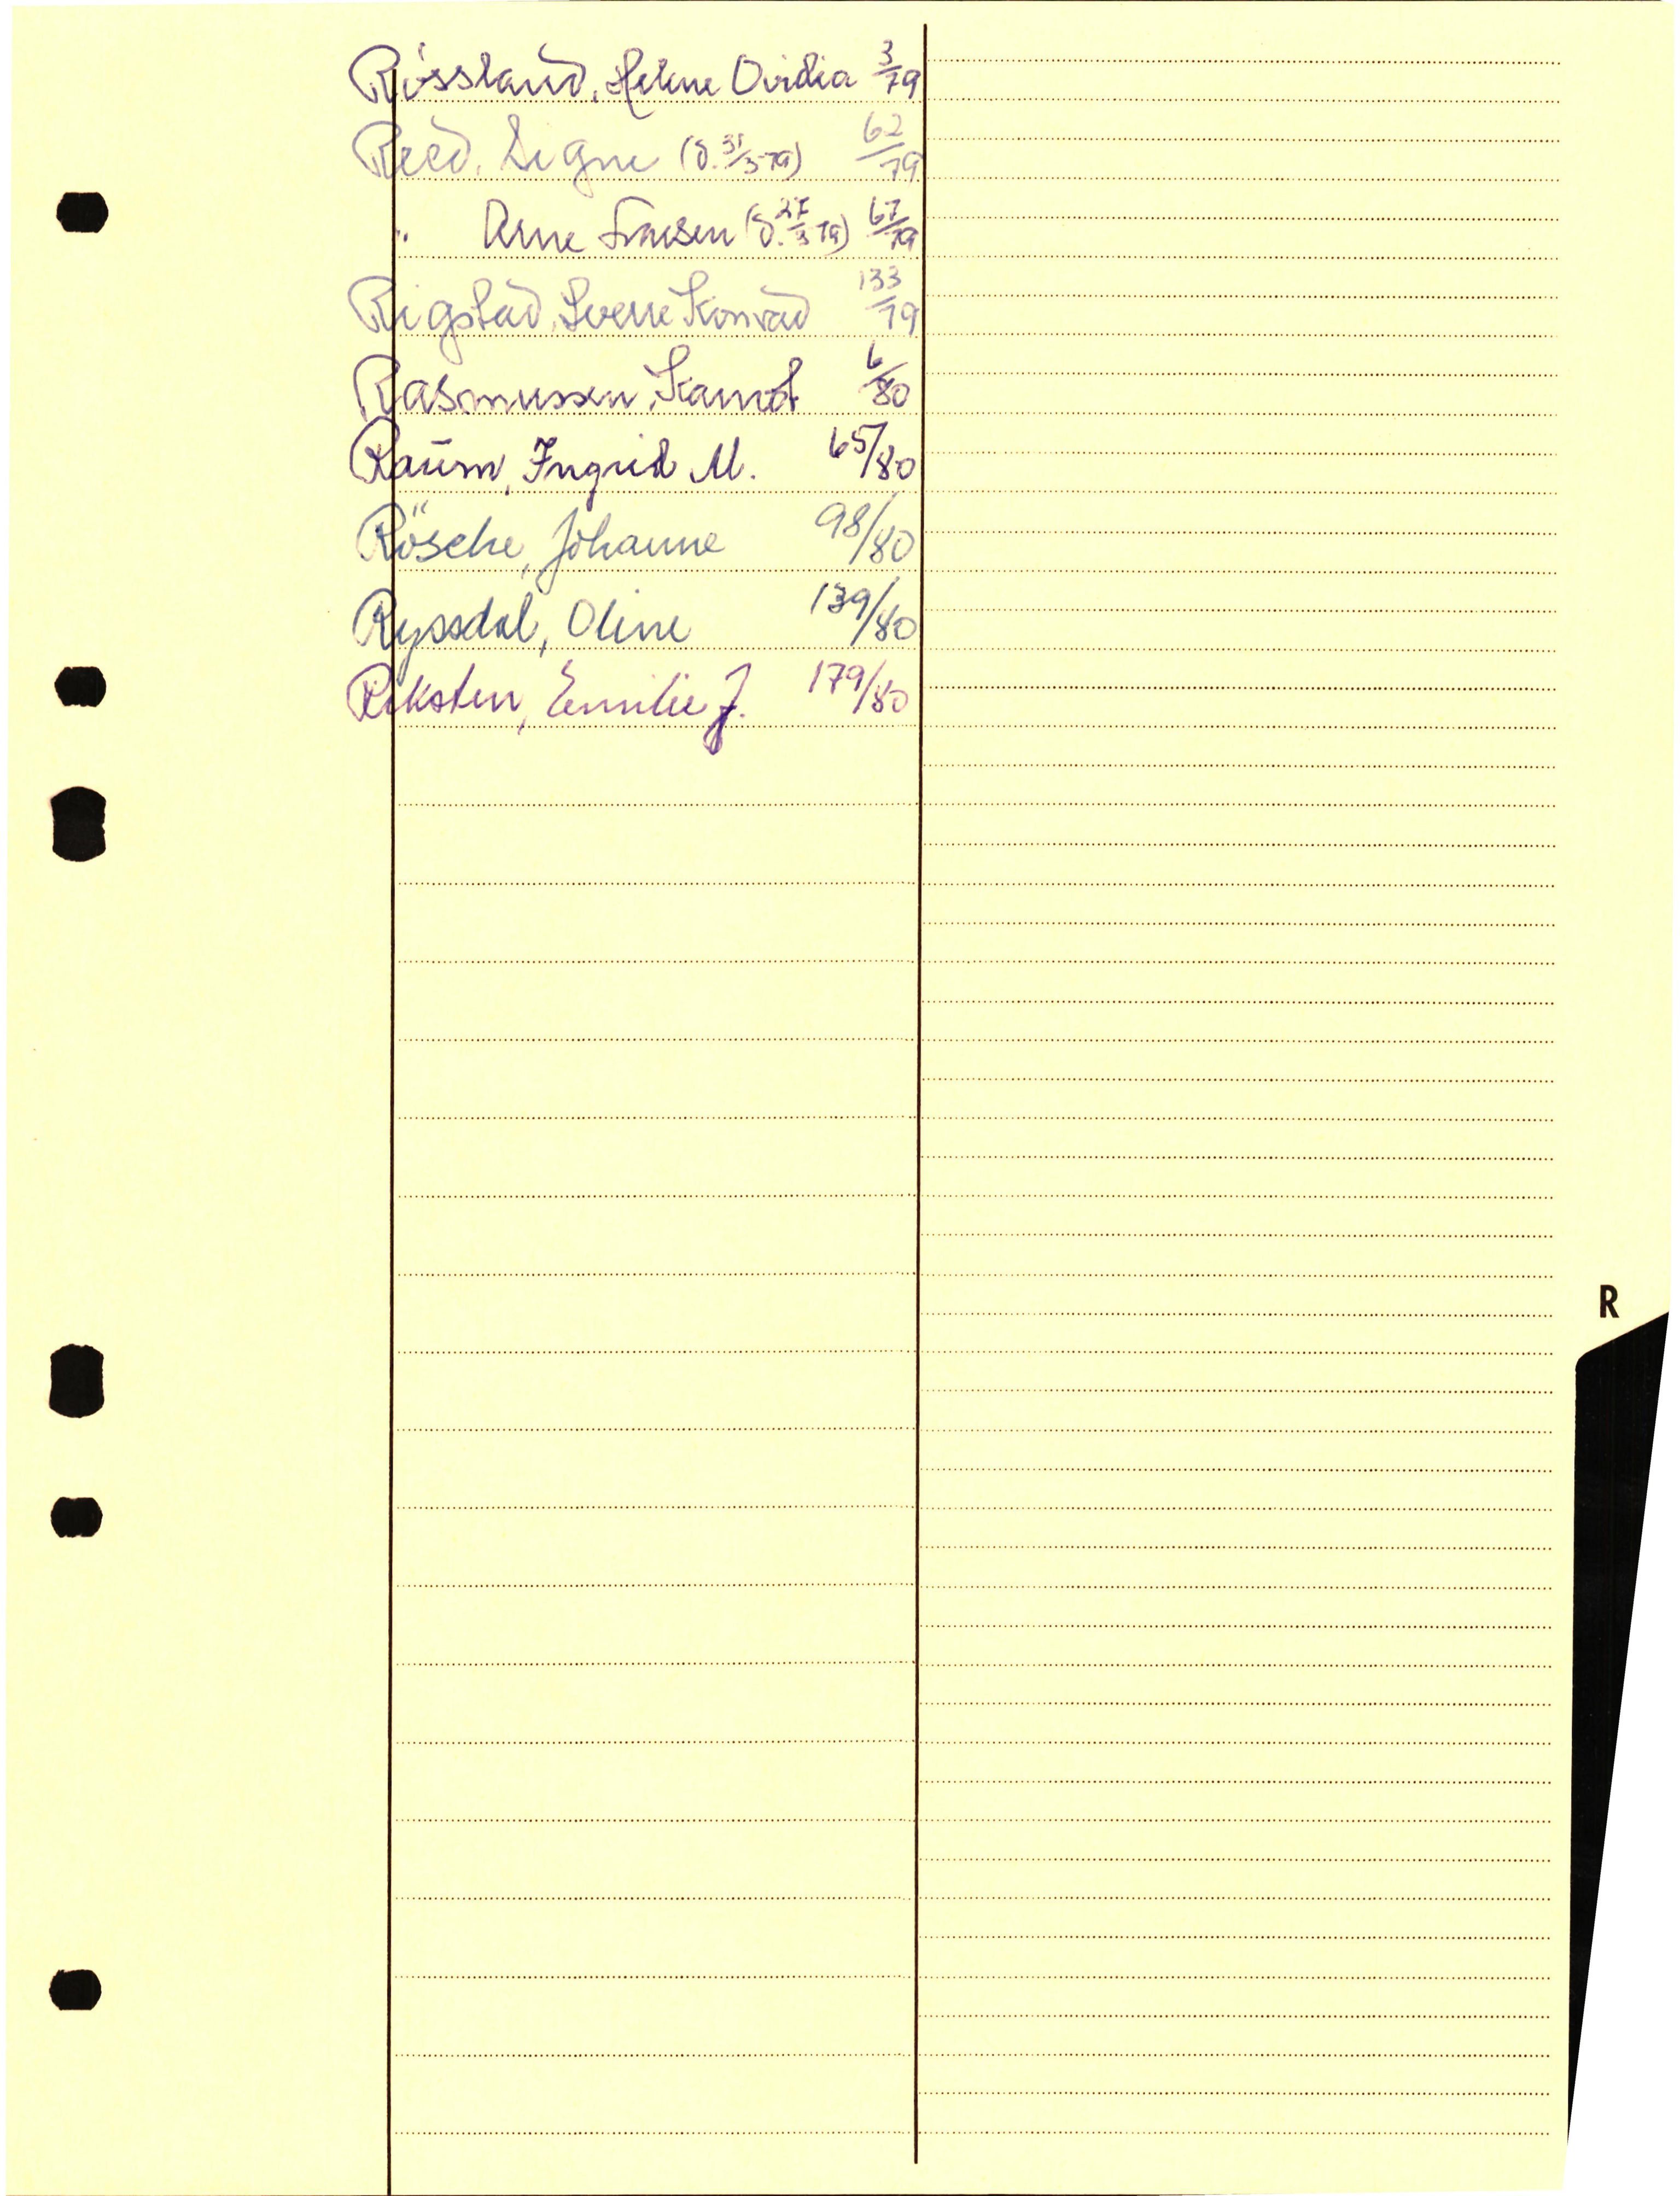 Røssland, Helene Ovidia 3/79
Reed, Signe (d. 31/3-79) 62/79
" Arne Fransen (d. 27/3 79) 67/79
Rigstad, Sverre Konrad 133/79
Rasmussen, 6/80
Raum, Ingrid M. 65/80
Rösche, Johanne 98/80
Ryssdal, Oline 139/80
Reksten, Emilie J. 179/80
R